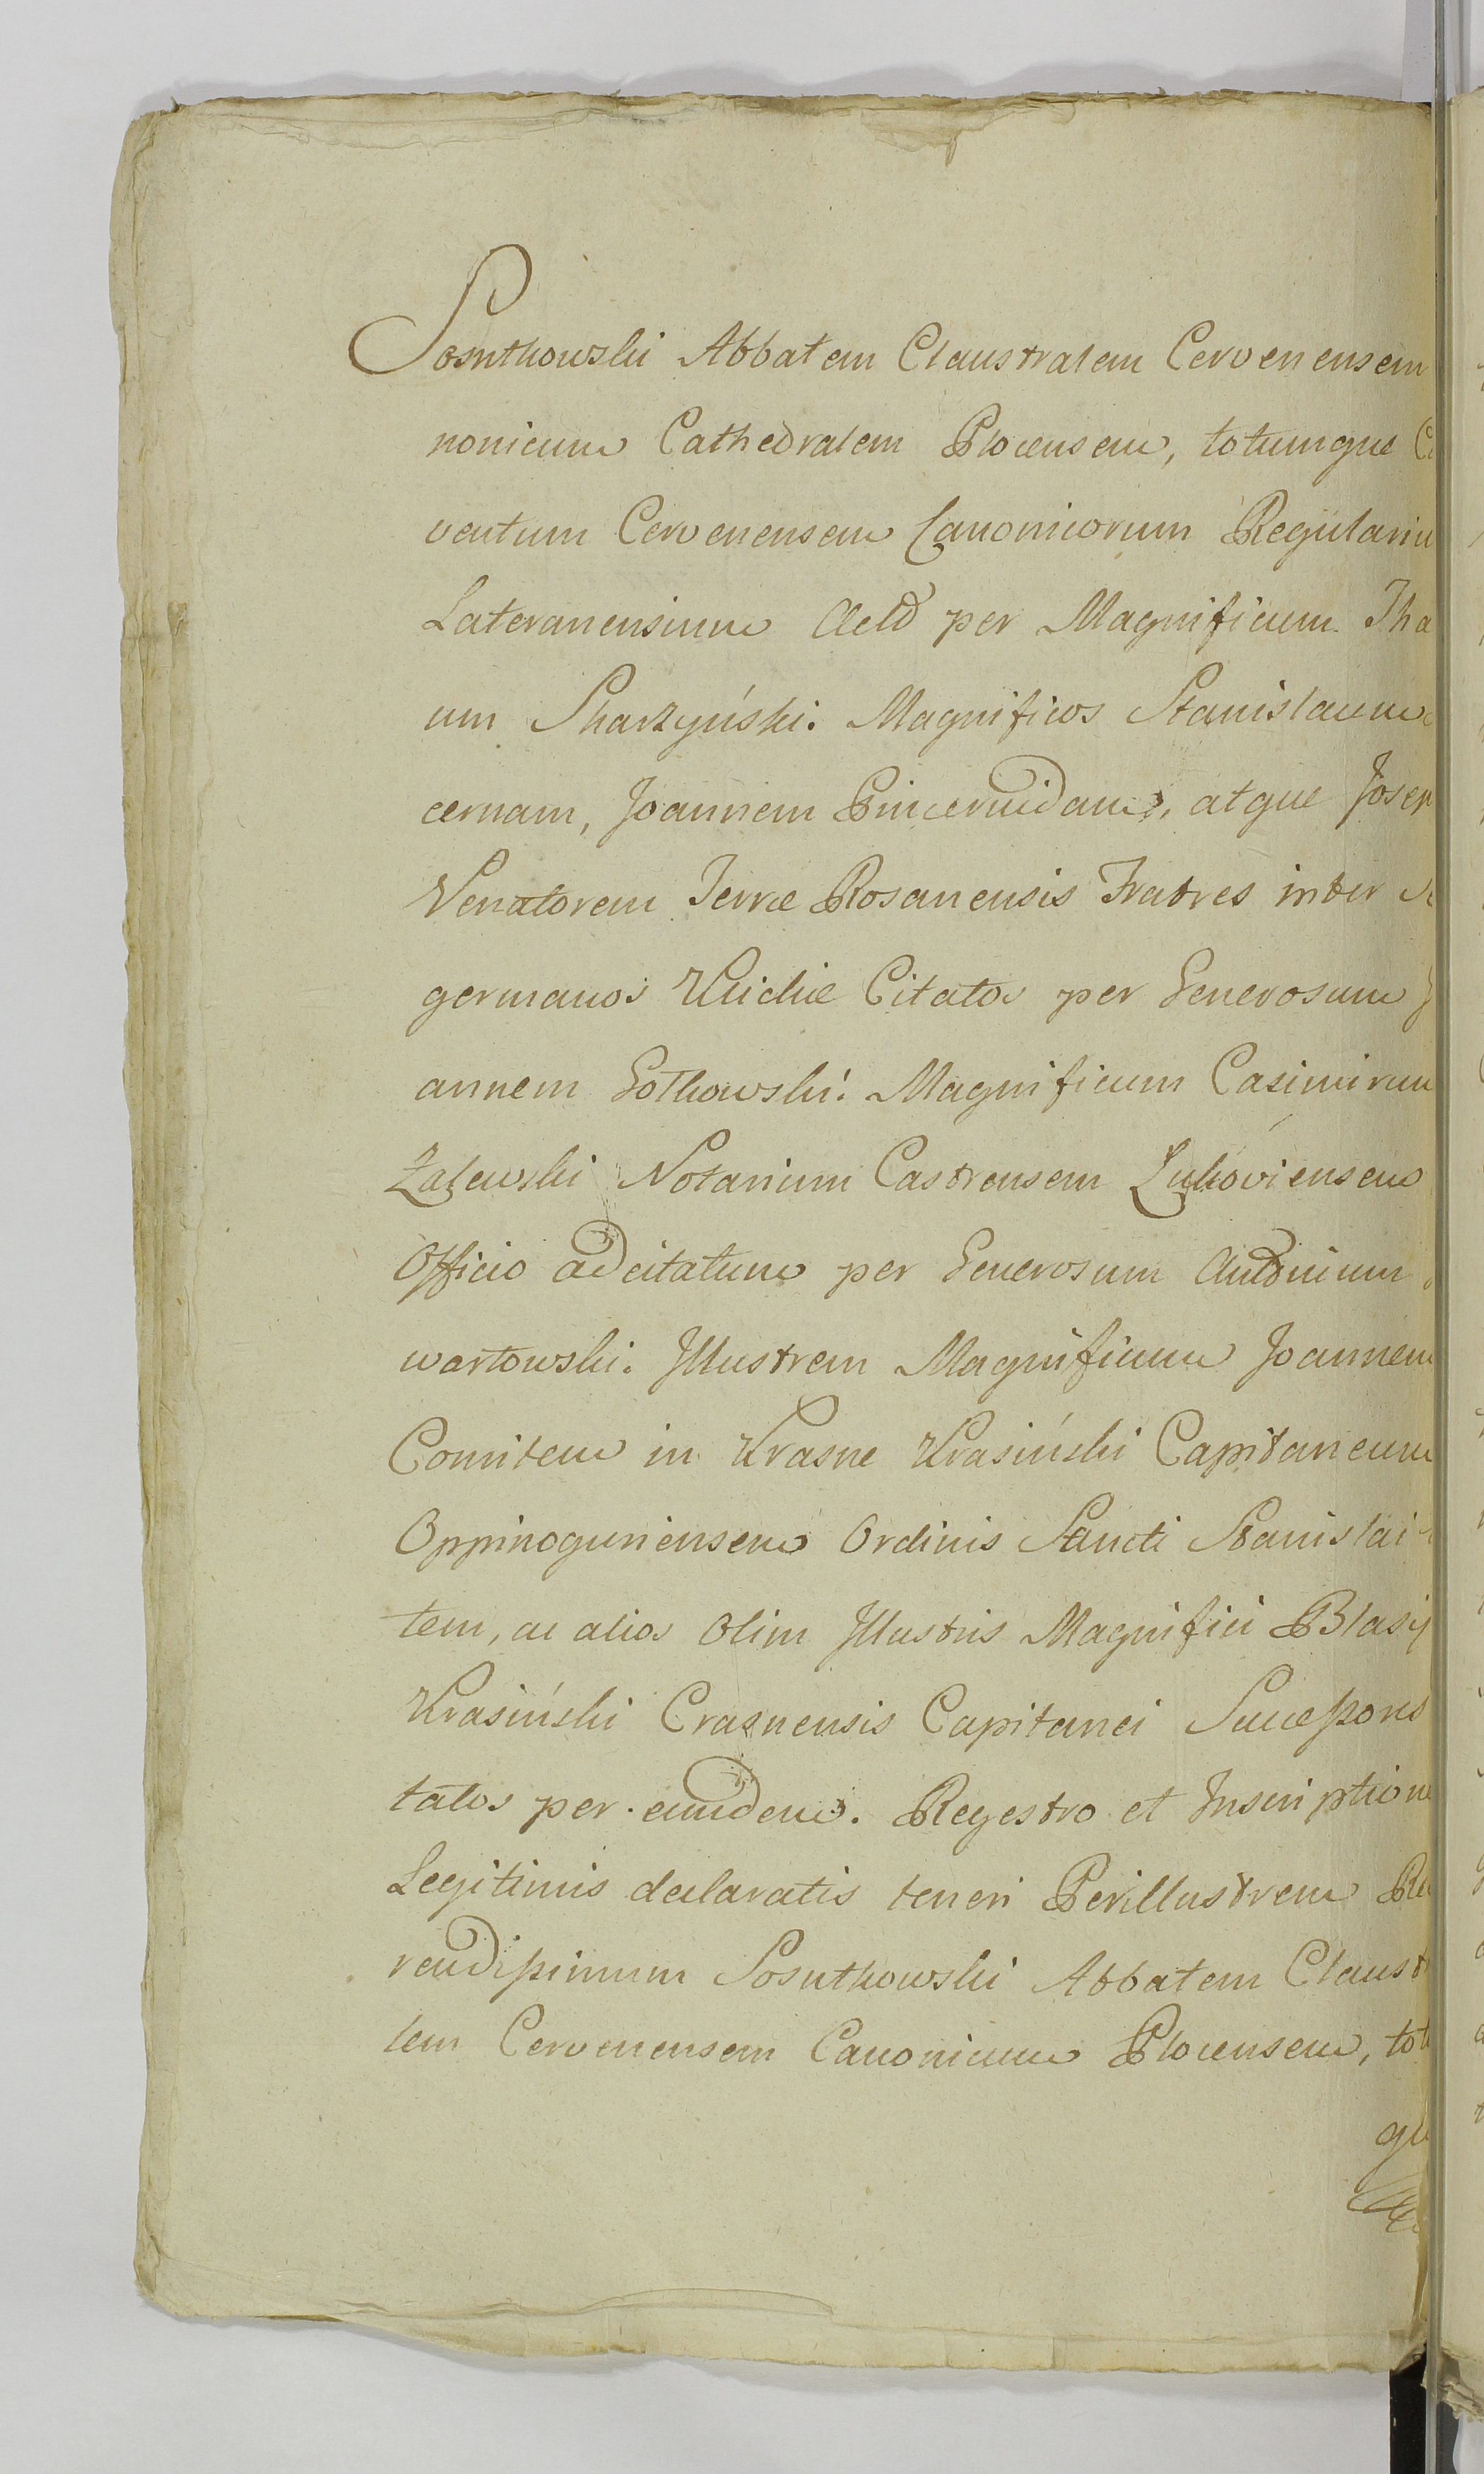 Sosntkowski Abbatem Claustralem Cervenensem
nonicum Cathedralem Plocensem, totumque
ventum Cervenensem Canonicorum Regulariu
Lateranensium Actd per Magnificum Tha
um Skarzyński. Magnificos Stanislaum
cernam, Joannem Pincernidam, atque Josep
Venatorem Terræ Rosanensis Fratres inter
germanos Kuickie Citatos per Generosum
annem Gotkowski. Magnificum Casimirum
Zalewski Notarium Castrensem Lukoviensem
Officio adcitatum per Generosum Antonium
wartowski. Illustrem Magnificum Joannem
Comitem in Krasne Krasiński Capitaneum
Oppinoguriensem Ordinis Sancti Stanislai
tem, ac alios olim Illustris Magnifici Blasij
Krasiński Crasnensis Capitanei Successores
tatos per eundem. Regestro et Inscriptione
Legitimis declaratis teneri Perillustrem Re
rendissimum Sosntkowski Abbatem Claust
lem Cervenensem Canonicum Plocensem, tot
qu